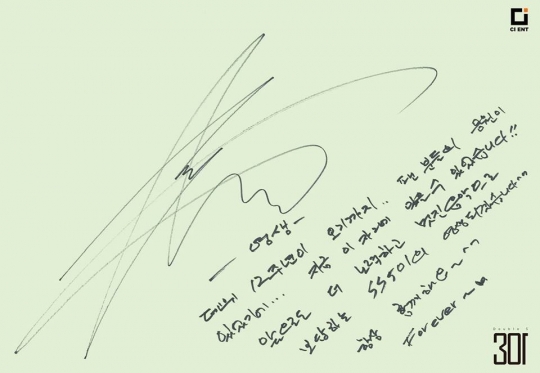 CI ENT
-영생-
데뷔 12주년이 오기까지.. 팬 분들의 응원이
있었기에... 지금 이 자리에 있을 수 있었습니다!!
앞으로도 더 노력하고 멋진 음악으로
보답하는 SS501의 영생 되겠습니다^^
항상 함께해요~^^
Forever~♥
Double S
301